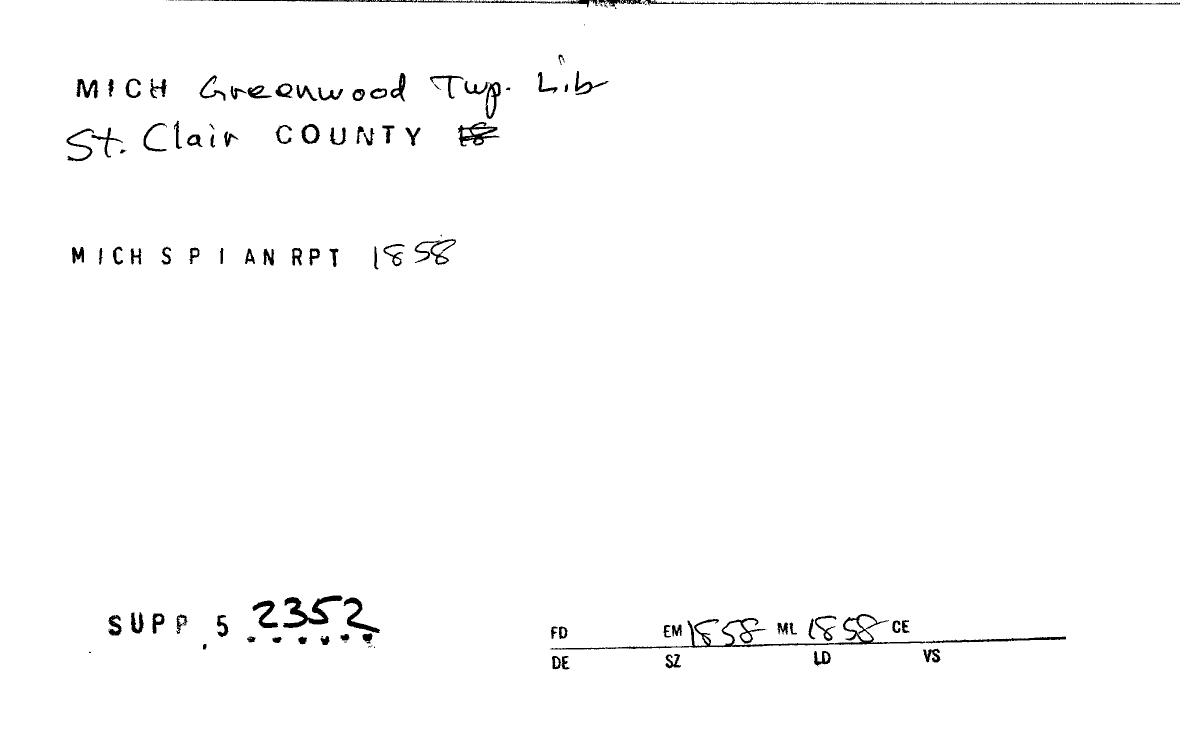 MICH Greenwood Twp. Lib
St. Clair COUNTY
MICH S P I AN RPT 1858
SUPP. 5 2352
FD EM 1858 ML 1858 CE
DE SZ LD VS